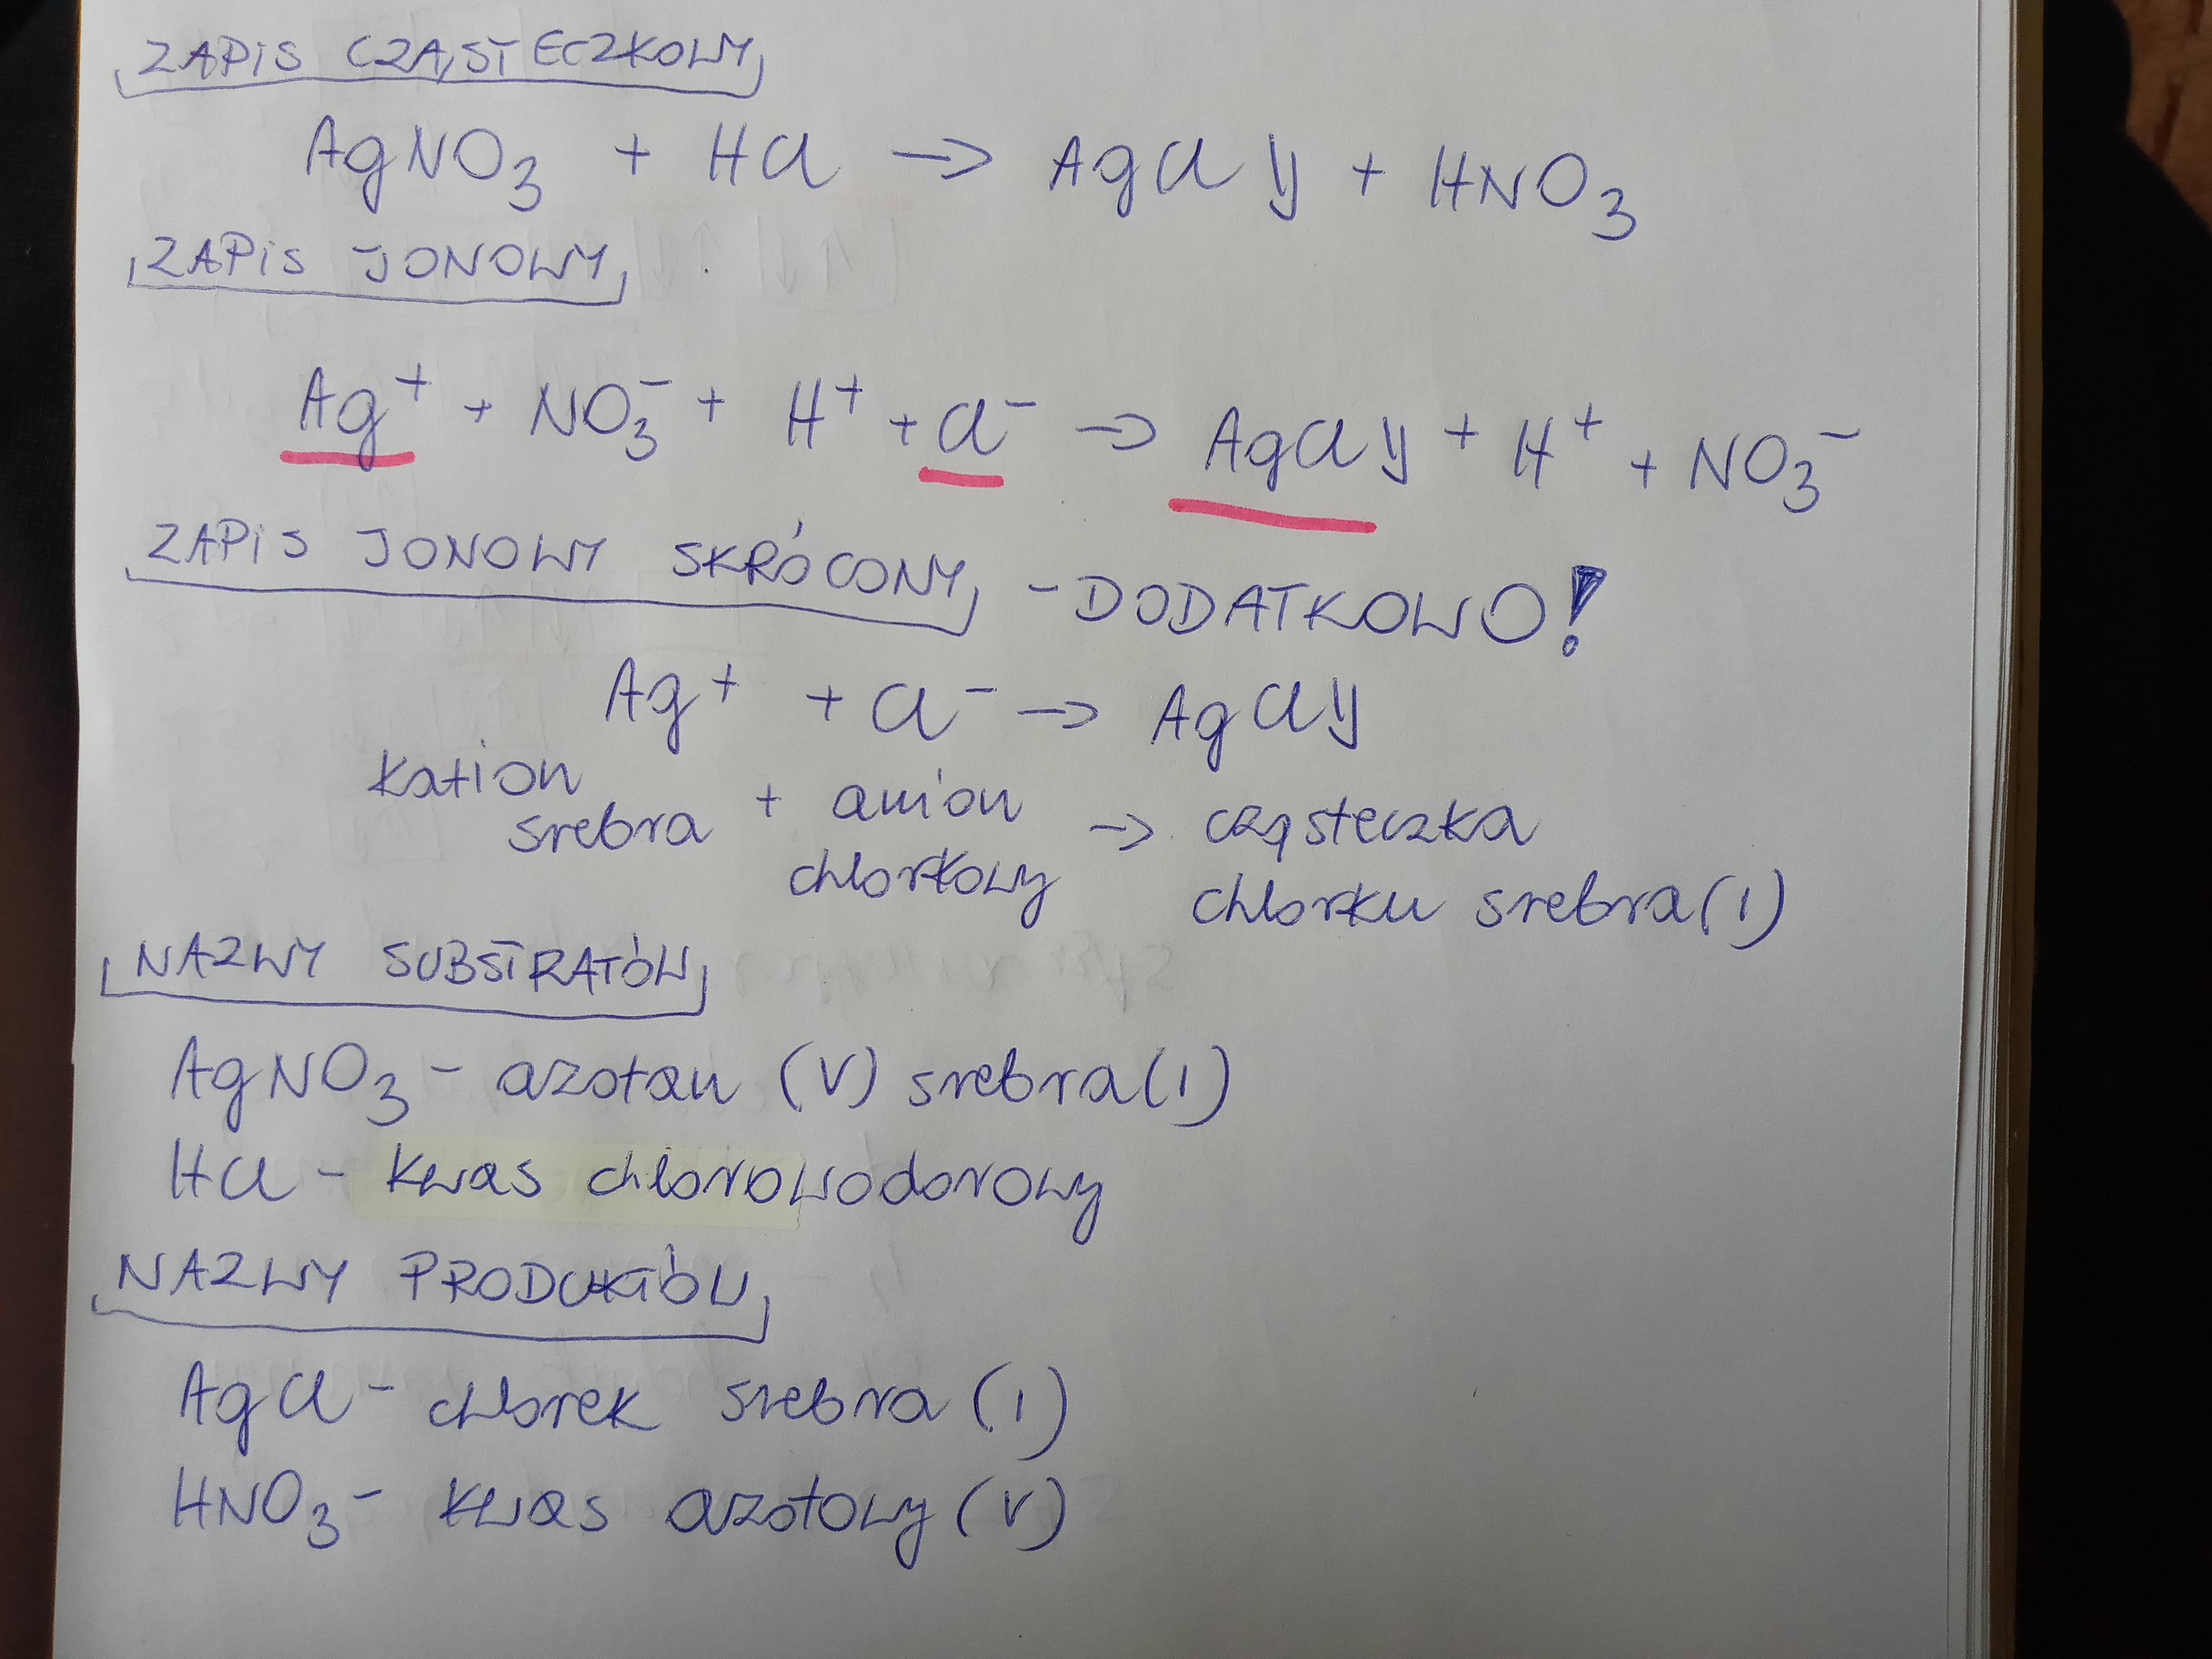 ZAPIS CZĄSTECZKOWY
AgNO₃ + HCl → AgCl ↓ + HNO₃
ZAPIS JONOWY
Ag⁺ + NO₃⁻ + H⁺ + Cl⁻ → AgCl ↓ + H⁺ + NO₃⁻
ZAPIS JONOWY SKRÓCONY - DODATKOWO!
Ag⁺ + Cl⁻ → AgCl↓
kation srebra + anion chlorkowy → cząsteczka chlorku srebra(I)
NAZWY SUBSTRATÓW
AgNO₃ - azotan (V) srebra(I)
HCl - kwas chlorowodorowy
NAZWY PRODUKTÓW
AgCl - chlorek srebra (I)
HNO₃ - kwas azotowy (V)